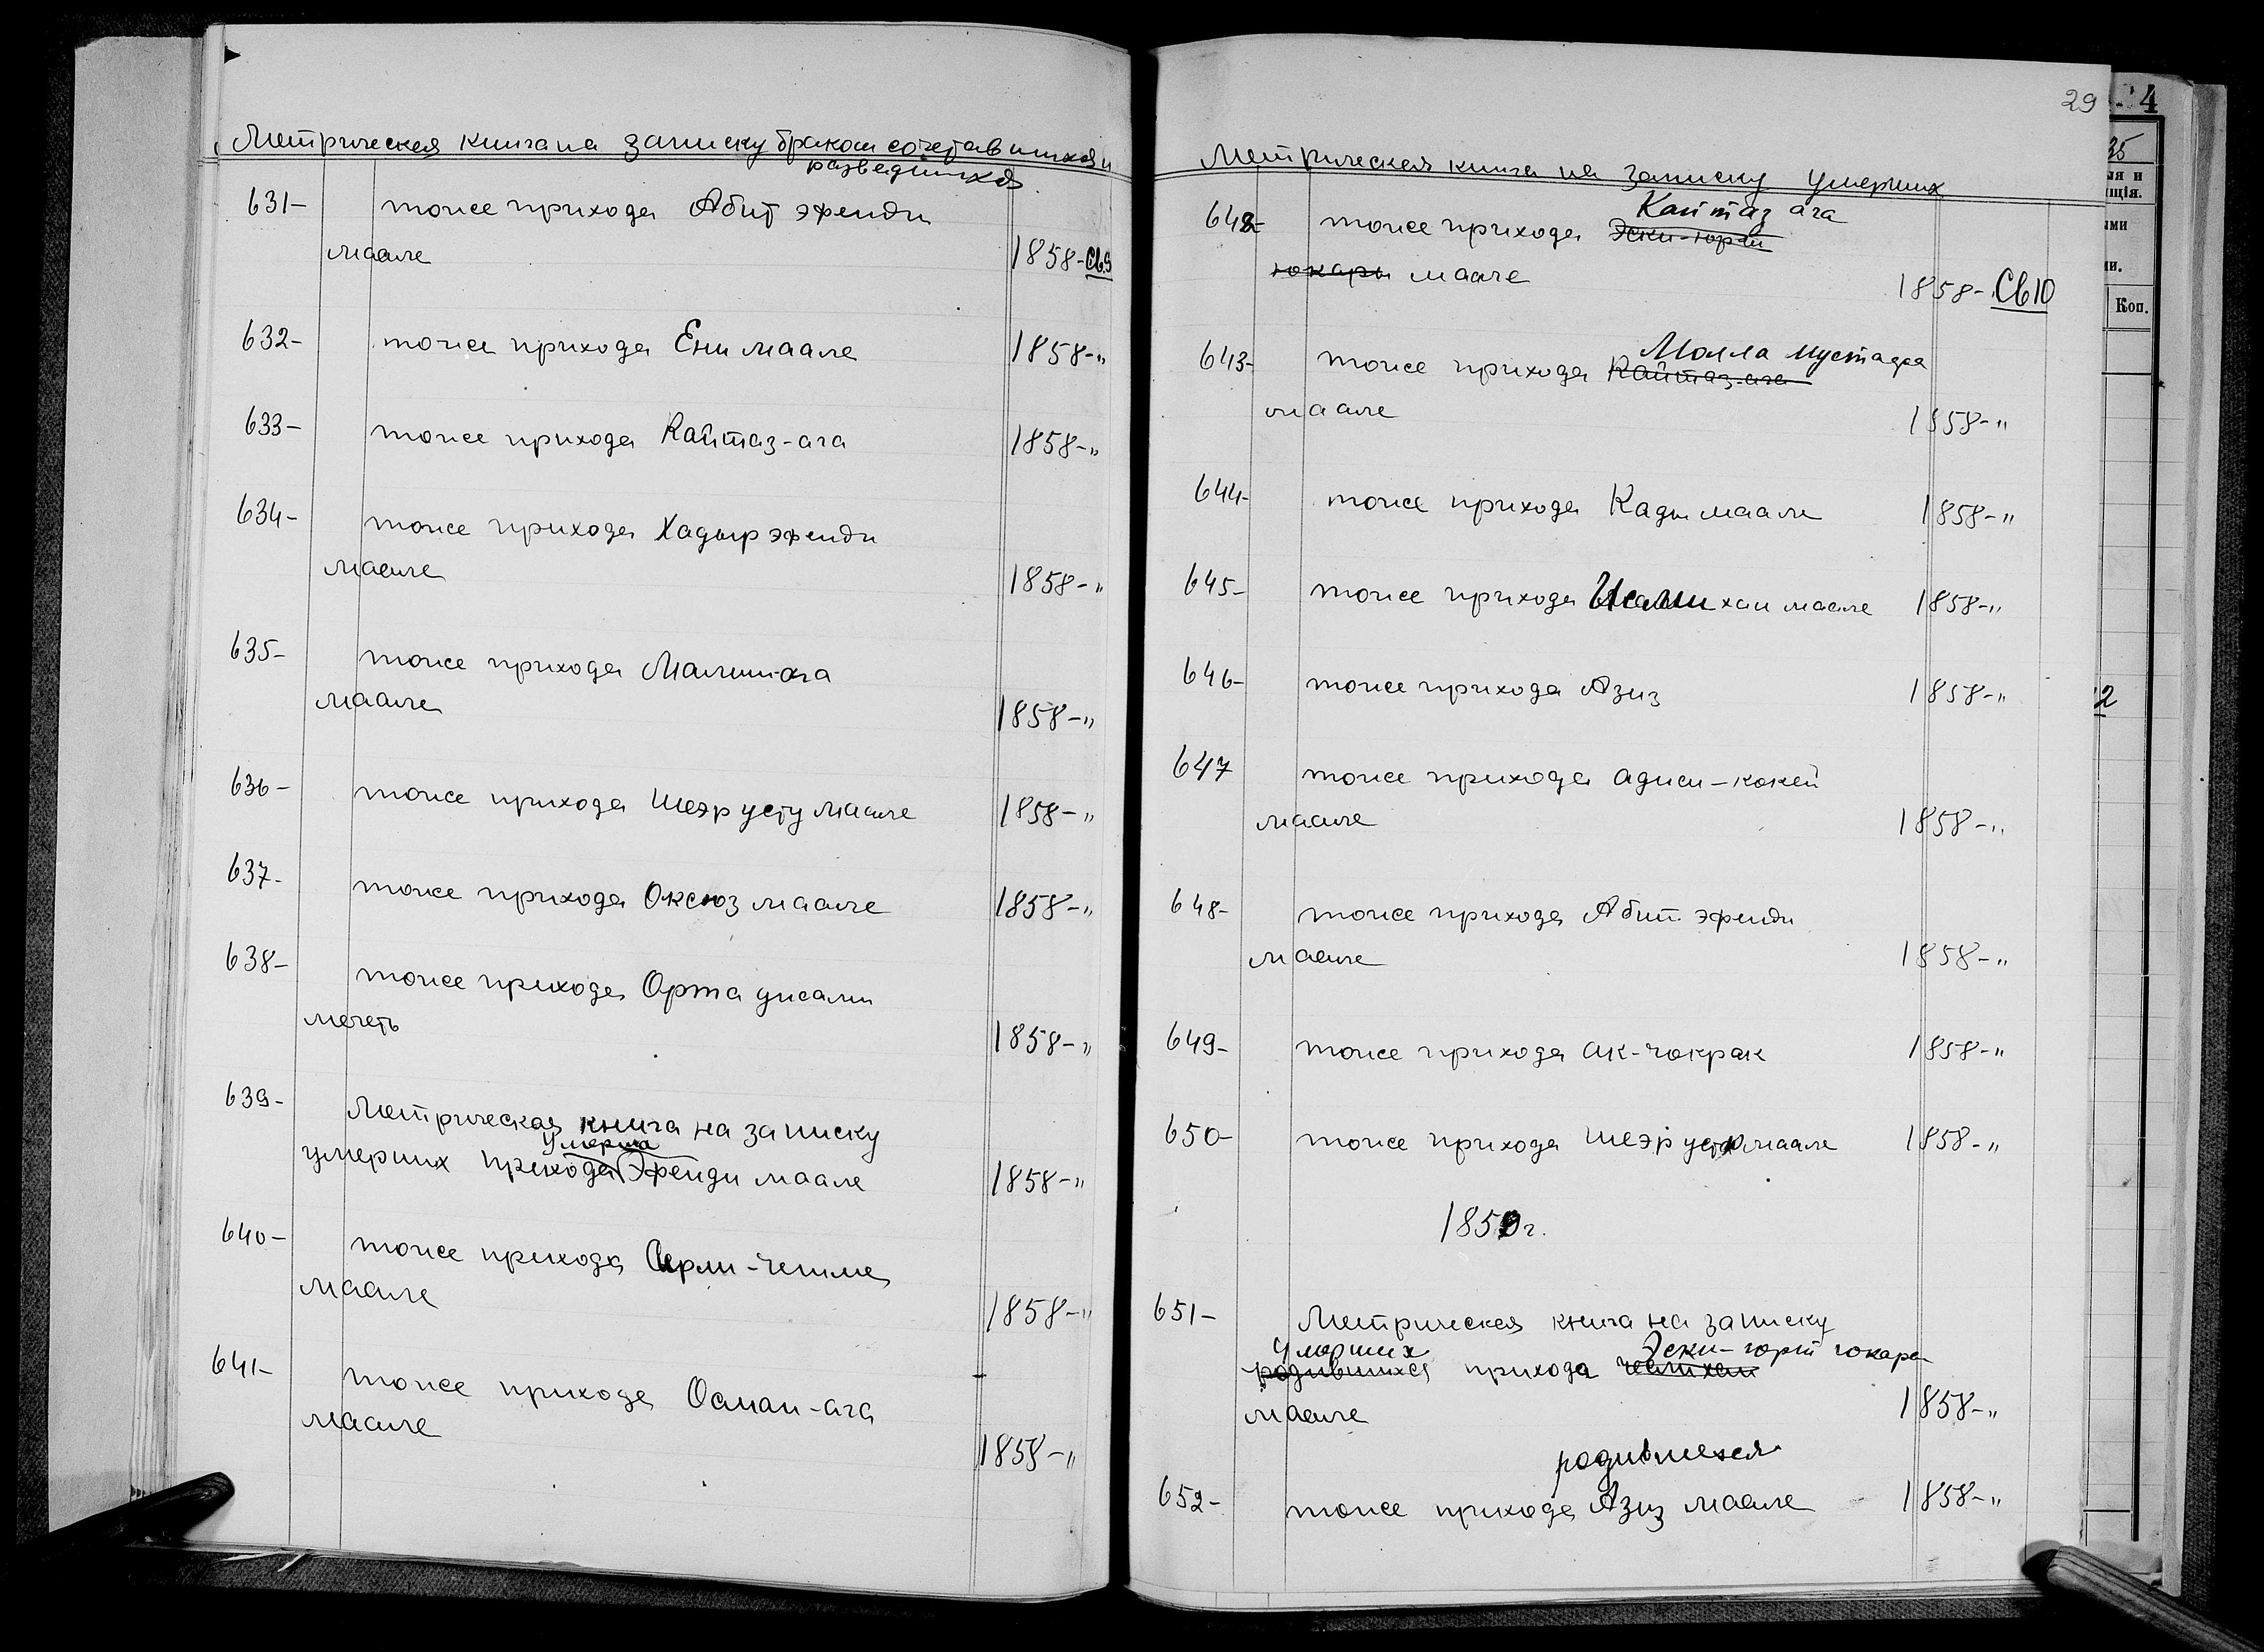 Метрическая книга на записку браком сочетавшихся и
разведшихся
631- тоже прихода Абит эфенди
маале 1858-св9
632- тоже прихода Ени маале 1858-"
633- тоже прихода Кайтаз-ага 1858-"
634- тоже прихода Хадыр эфенди
маале 1858-"
635- тоже прихода Малши-ага
маале 1858-"
636- тоже прихода Шеэр усту маале 1858-"
637- тоже прихода Оксюз маале 1858-"
638- тоже прихода Орта джами
мечеть 1858-"
639- Метрическая книга на записку
умерших прихода Эфенди маале 1858-"
640- тоже прихода
маале 1858-"
641- тоже прихода Осман-ага
маале 1858-"
29
Метрическая книга на записку умерших
Кайтаз ага
642- тоже прихода Эски-юрт
юкары маале 1858-Св10
Молла Мустафа
643- тоже прихода Кайтаз-ага
маале 1858-"
644- тоже прихода Кады маале 1858-"
645- тоже прихода хан маале 1858-"
646- тоже прихода Азиз 1858-"
647 тоже прихода аджи-кокей
маале 1858-"
648- тоже прихода Абит эфенди
маале 1858-"
649- тоже прихода ак-чокрак 1858-"
650- тоже прихода шеэр усту маале 1858-"
1859г.
651- Метрическая книга на записку
умерших Эски-юрт юкары
родившихся прихода
маале 1858-"
родившихся
652- тоже прихода Азиз маале 1858-"
4
35
ыя и
ція.
ыми
ми.
Коп.
2